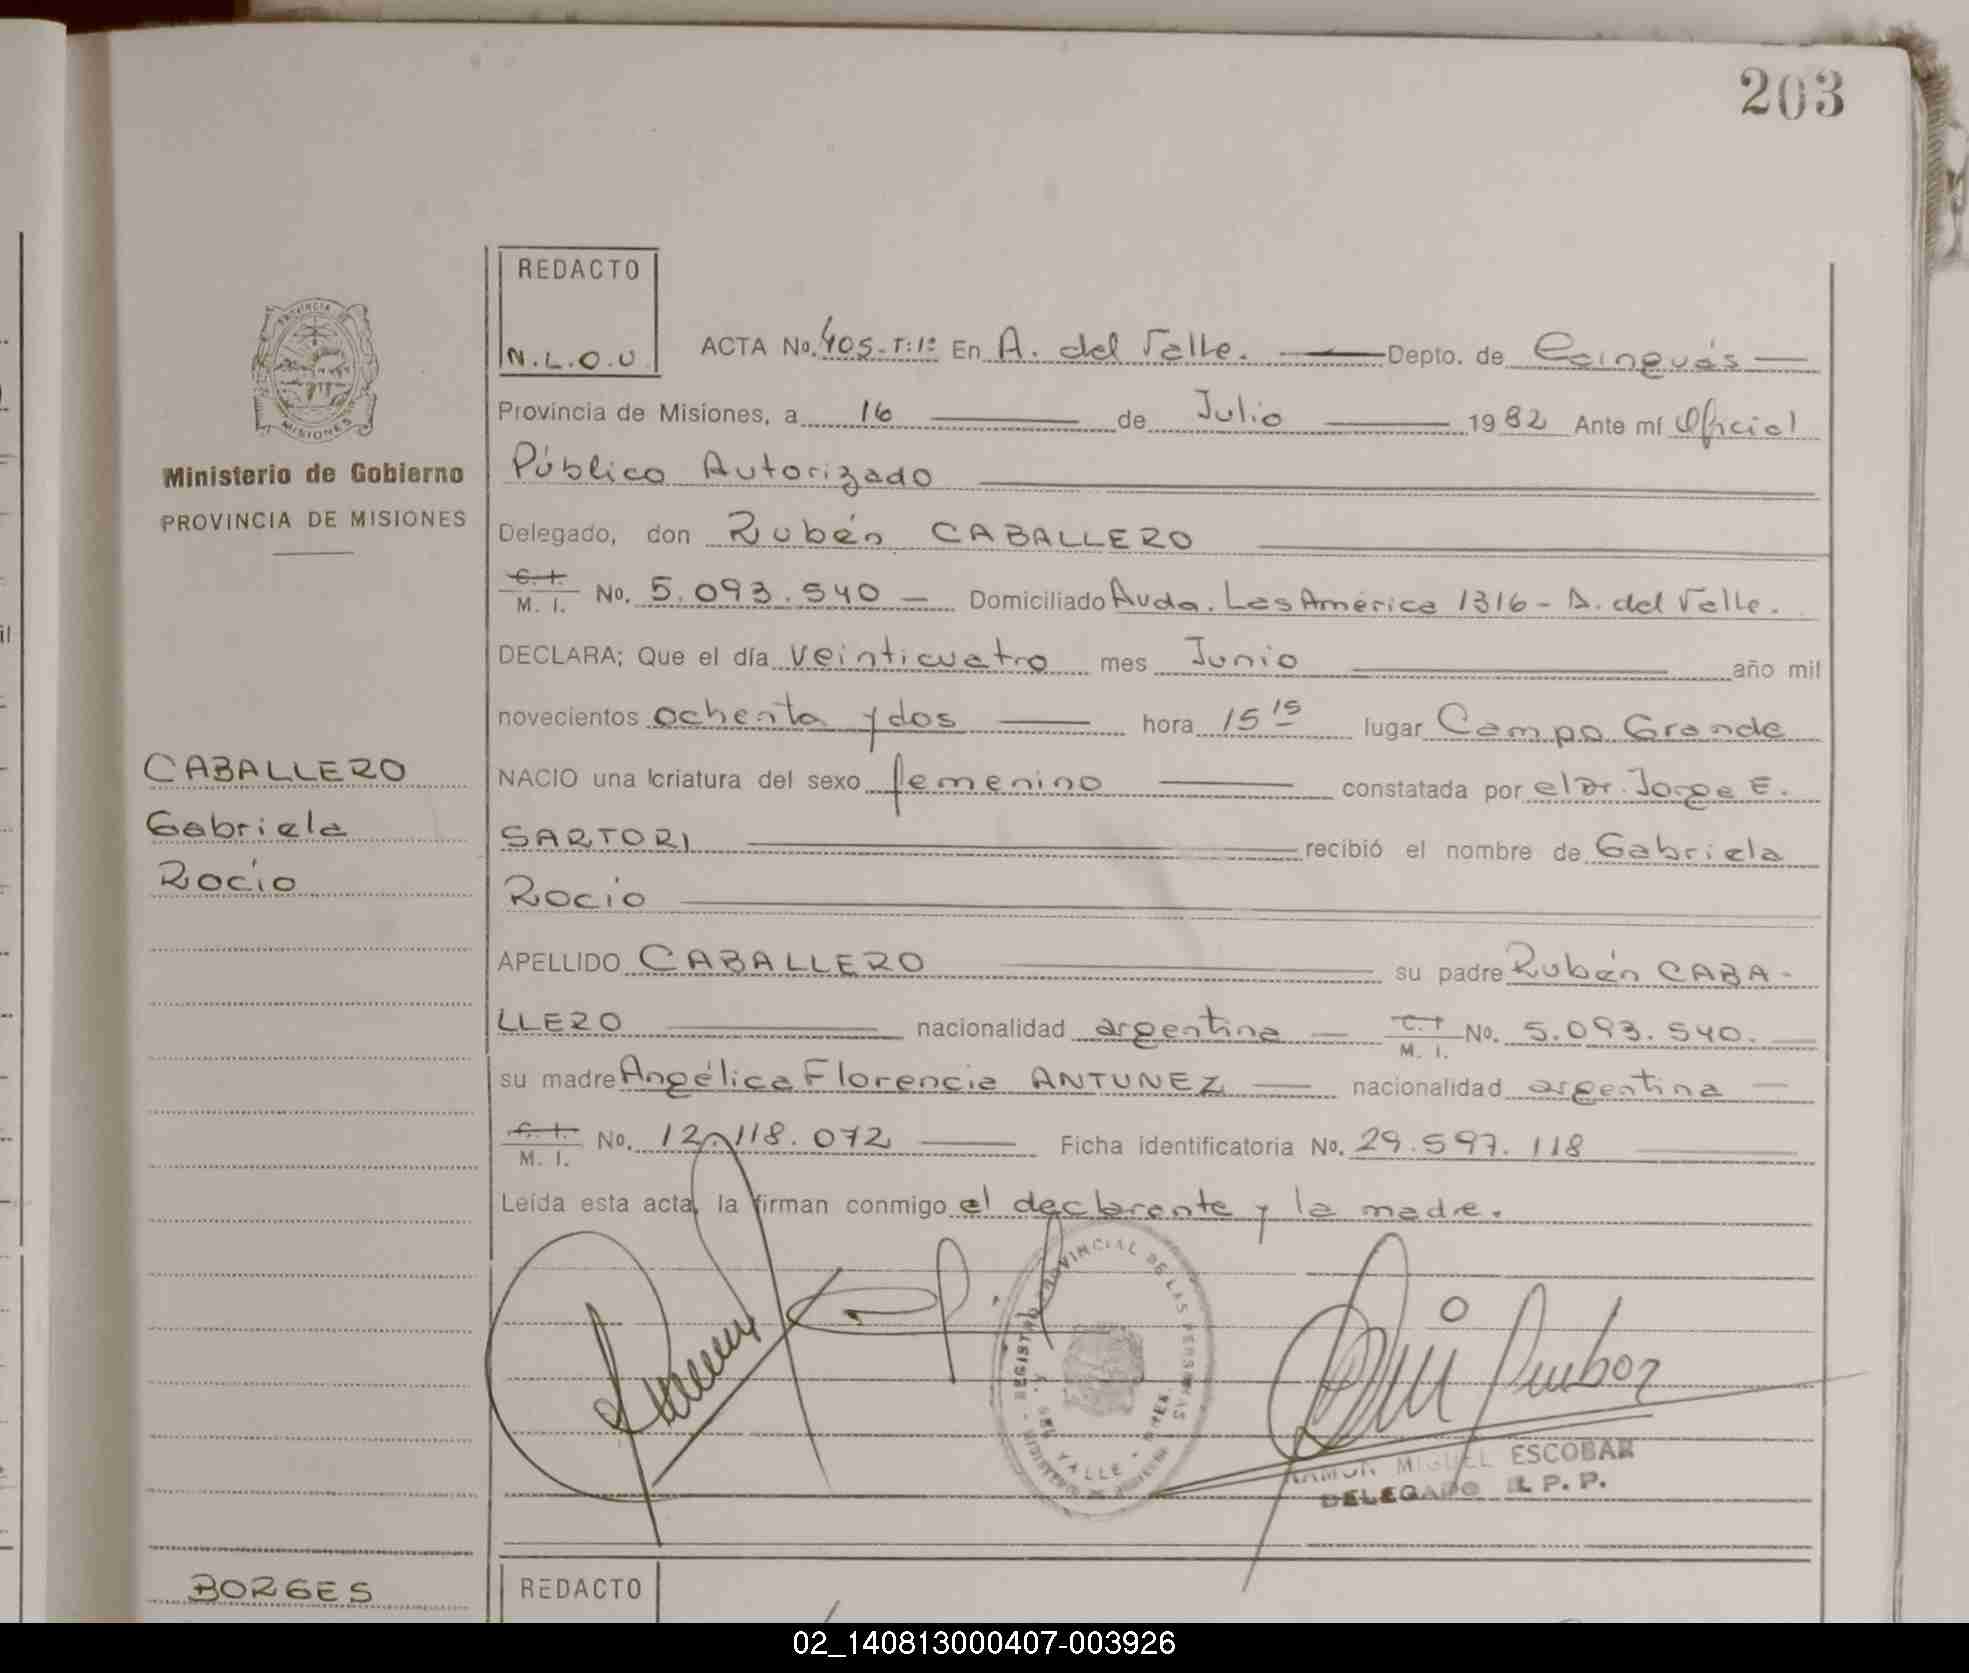 203
REDACTO
N.L.O.U
ACTA No. 405-T:1º En A. del Valle. Depto. de Cainguás
Provincia de Misiones, a 16 de Julio 1982 Ante mí Oficial
Público Autorizado
Delegado, don Rubén CABALLERO
C. I.
M. I. No. 5.093.540 — Domiciliado Avda. Las América 1316 - A. del Valle.
DECLARA; Que el día veinticuatro mes Junio año mil
novecientos ochenta y dos hora 15 15 lugar Campo Grande
NACIO una criatura del sexo femenino constatada por el Dr. Jorge E.
SARTORI recibió el nombre de Gabriela
Rocio
APELLIDO CABALLERO su padre Rubén CABA-
LLERO nacionalidad argentina — C. I
M. I. No. 5.093.540.
su madre Angélica Florencia ANTUNEZ — nacionalidad argentina —
C. I.
M. I. No. 12.118.072 Ficha identificatoria No. 29.597.118
Leída esta acta, la firman conmigo el declarante y la madre.
REGISTRO PROVINCIAL DE LAS PERSONAS
VALLE
RAMON MIGUEL ESCOBAR
DELEGADO R.P.P.
PROVINCIA DE
MISIONES
Ministerio de Gobierno
PROVINCIA DE MISIONES
CABALLERO
Gabriela
Rocio
BORGES
REDACTO
02_140813000407-003926